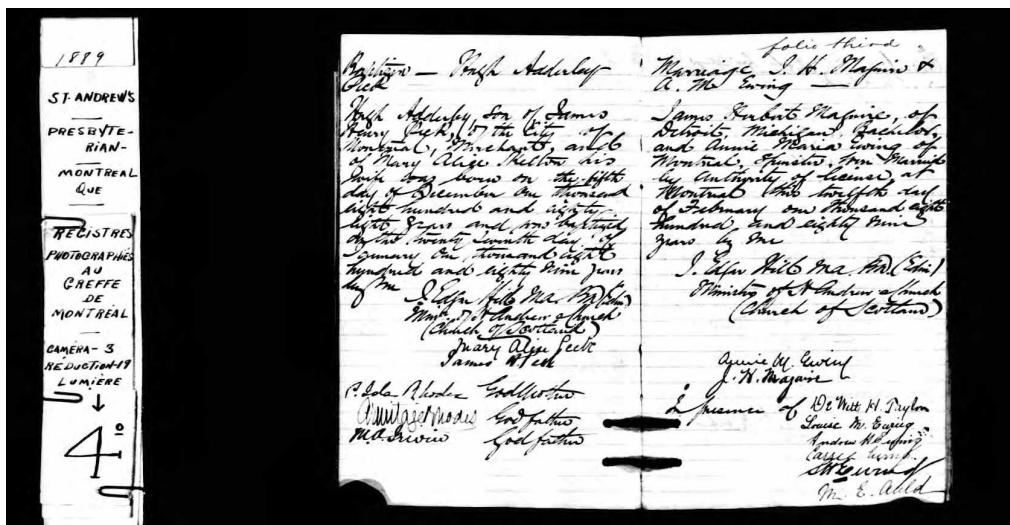 1889
ST. ANDREW'S
PRESBYTE-
RIAN-
MONTREAL
QUE
REGISTRES
PHOTOGRAPHIÉS
AU
GREFFE
DE
MONTRÉAL
CAMÉRA-3
RÉDUCTION-19
LUMIÈRE
4
Baptism — Hugh Adderley
Peck
Hugh Adderley, Son of James
Henry Peck, of the City of
Montreal, Merchant, and
of Mary Alice Skelton his
Wife was born on the fifth
day of December One thousand
eight hundred and eighty-
eight years and was baptized
on the twenty seventh day of
January One thousand eight
hundred and eighty nine years
by me
J. Edgar Hill Ma. (Edin)
of St Andrew's Church
(Church of Scotland)
Mary Alice
James
Rhodes Godmother
Armitage Rhodes Godfather
Godfather
folio third
Marriage J. H. Maguire &
A. M. Ewing —
James Herbert Maguire, of
Detroit, Michigan, Bachelor,
and Annie Maria Ewing of
Montreal, Spinster, were Married
by Authority of license, at
Montreal this twelfth day
of February one thousand eight
hundred and eighty nine
years by me
J. Edgar Hill Ma. (Edin)
Minister of St Andrew's Church
(Church of Scotland)
Annie M. Ewing
J. H. Maguire
In presence of De Witt H. Taylor
Louise M. Ewing
Andrew Ewing
Carrie
Ewing
M. E. Auld